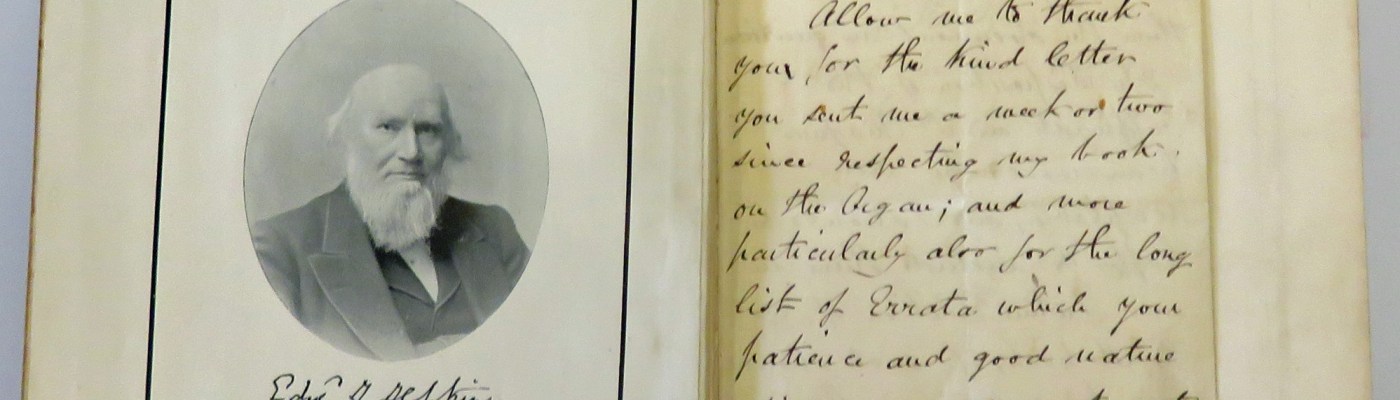 Allow me to thank
you for the kind letter
you sent me a week or two
since respecting my book
on the Organ; and more
particularly also for the long
list of Errata which your
patience and good nature